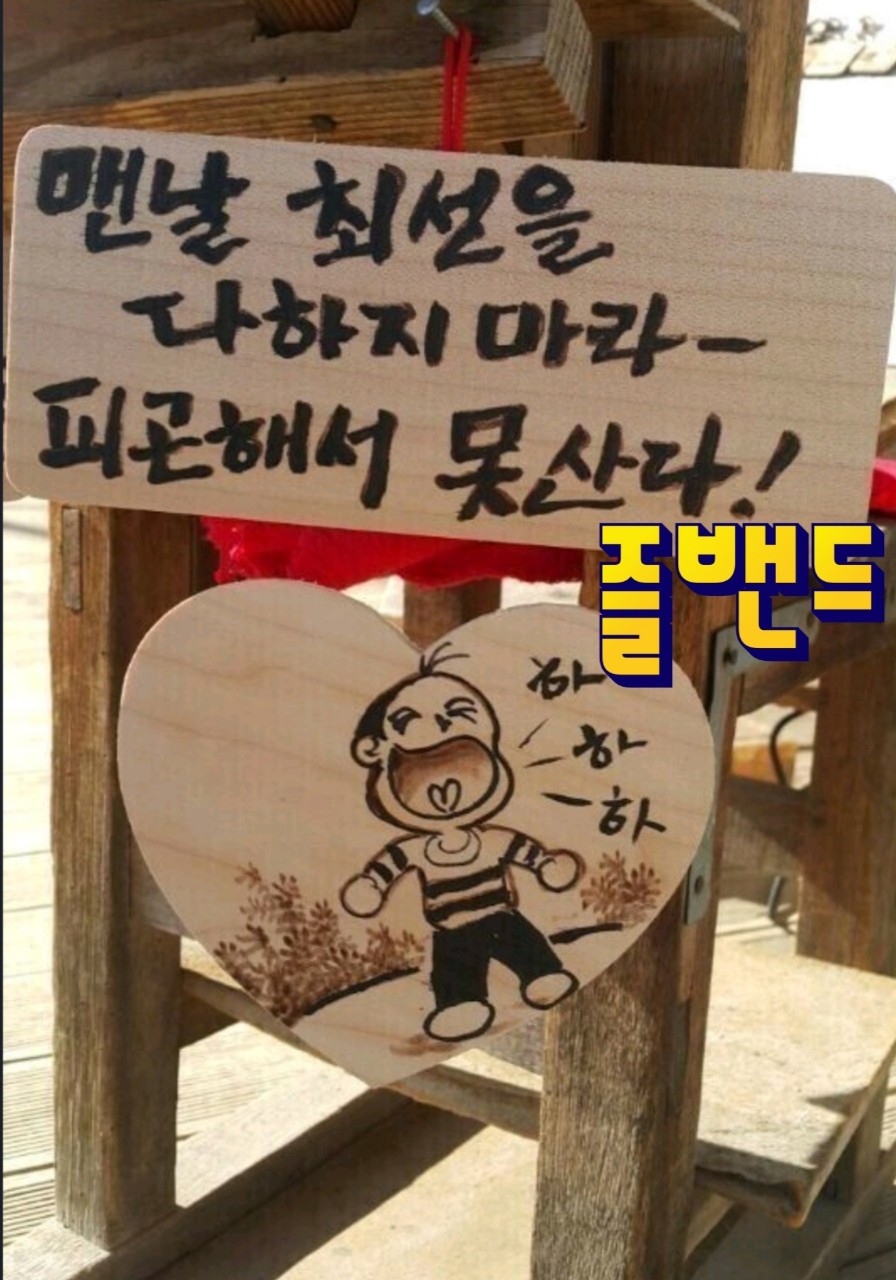 맨날 최선을
다하지 마라-
피곤해서 못산다!
즐밴드
하
하
하